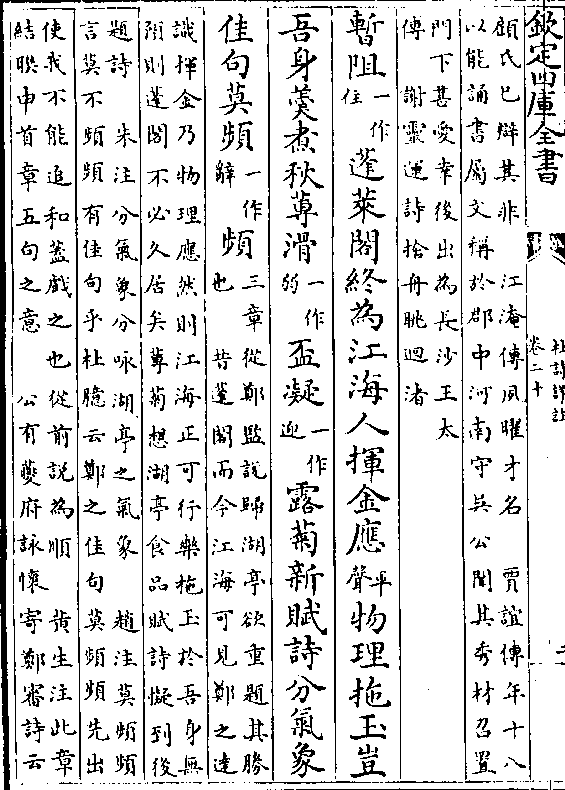 欽定四庫全書
杜詩詳註
卷二十
顧氏已辯其非　江淹傳夙曜才名　賈誼傳年十八
以能誦書屬文稱於郡中河南守吳公聞其秀材召置
門下甚愛幸後出為長沙王太
傅　謝靈運詩捨舟眺迴渚
暫阻一作住蓬萊閣終為江海人揮金應平聲物理拖玉豈
吾身羮煮秋蓴滑一作弱盃凝一作迎露菊新賦詩分氣象
佳句莫頻一作辭頻
三章從鄭監說歸湖亭欲重題其勝
也　昔蓬閣而今江海可見鄭之達
識揮金乃物理應然則江海正可行樂拖玉於吾身無
預則蓬閣不必久居矣蓴菊想湖亭食品賦詩擬到後
題詩　朱注分氣象分咏湖亭之氣象　趙注莫頻頻
言莫不頻頻有佳句乎杜臆云鄭之佳句莫頻頻先出
使我不能追和蓋戲之也從前說為順　黃生注此章
結聨申首章五句之意　公有夔府詠懷寄鄭審詩云